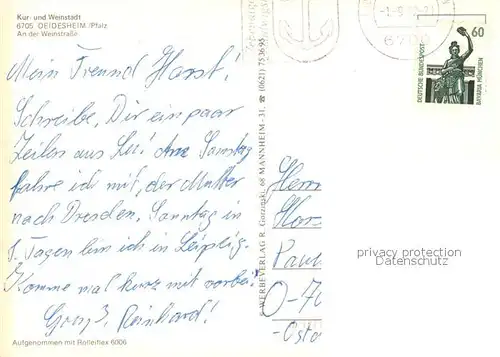 Kur- und Weinstadt
6705 DEIDESHEIM/Pfalz
An der Weinstraße
Mein Freund Horst!
Schreibe, Dir ein paar
Zeilen aus Lu! Am Samstag
fahre ich mit, der Mutter
nach Dresden, Sonntag in
8 Tagen bin ich in Leipzig.
Komme mal kurz mit vorbei.
Gruß, Reinhard!
Aufgenommen mit Rolleiflex 6006
WERBEVERLAG R. Gorzinski, 68 MANNHEIM - 31, ☎ (0621) 75 36 95
6700
60
DEUTSCHE BUNDESPOST
BAVARIA MÜNCHEN
Herrn
Hor
Pau
O-70
-Osta
privacy protection
Datenschutz